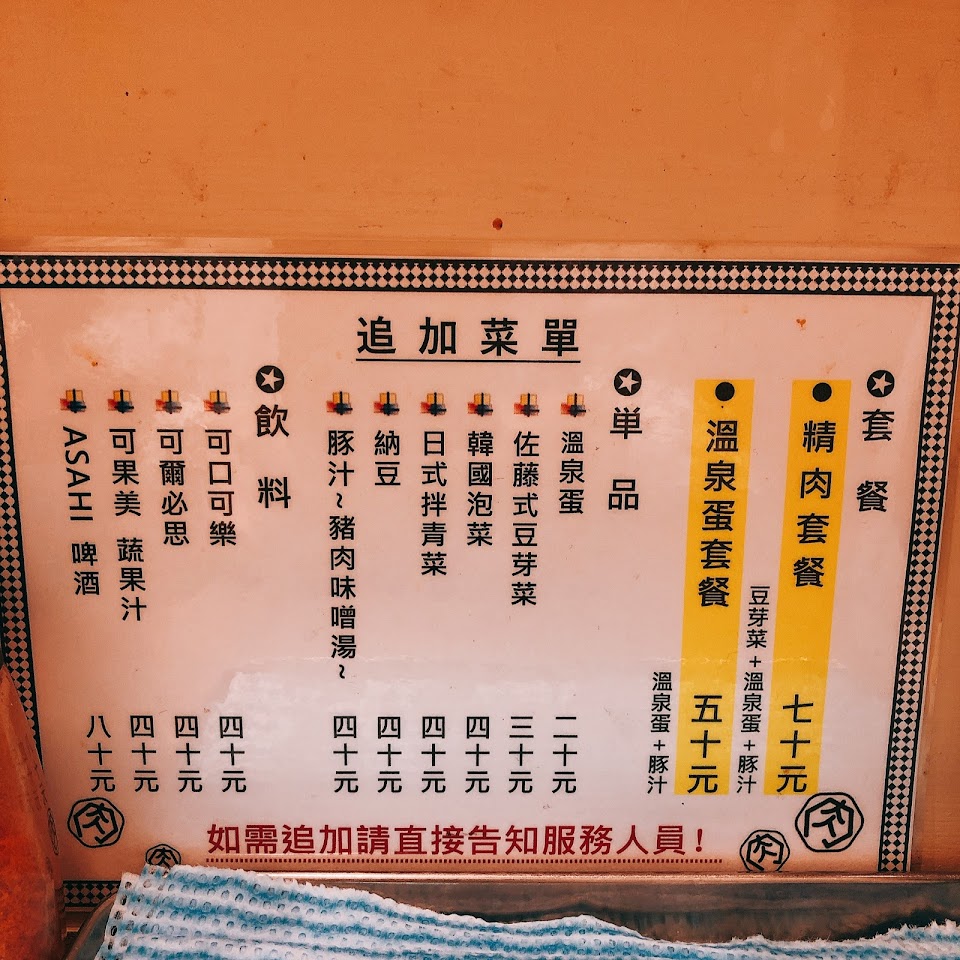 追加菜單
套餐
精肉套餐 七十元
豆芽菜+溫泉蛋+豚汁
溫泉蛋套餐 五十元
溫泉蛋+豚汁
単品
溫泉蛋 二十元
佐藤式豆芽菜 三十元
韓國泡菜 四十元
日式拌青菜 四十元
納豆 四十元
豚汁~豬肉味噌湯~ 四十元
飲料
可口可樂 四十元
可爾必思 四十元
可果美 蔬果汁 四十元
ASAHI 啤酒 八十元
如需追加請直接告知服務人員!